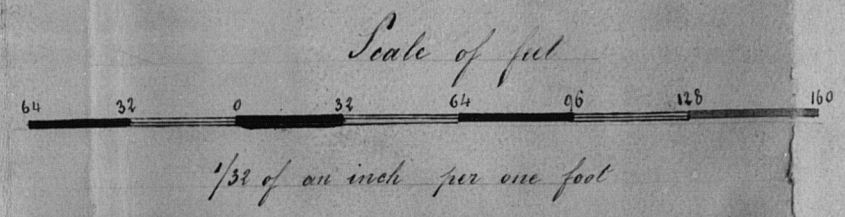 Scale of feet
64 32 0 32 64 96 128 160
1/32 of an inch per one foot